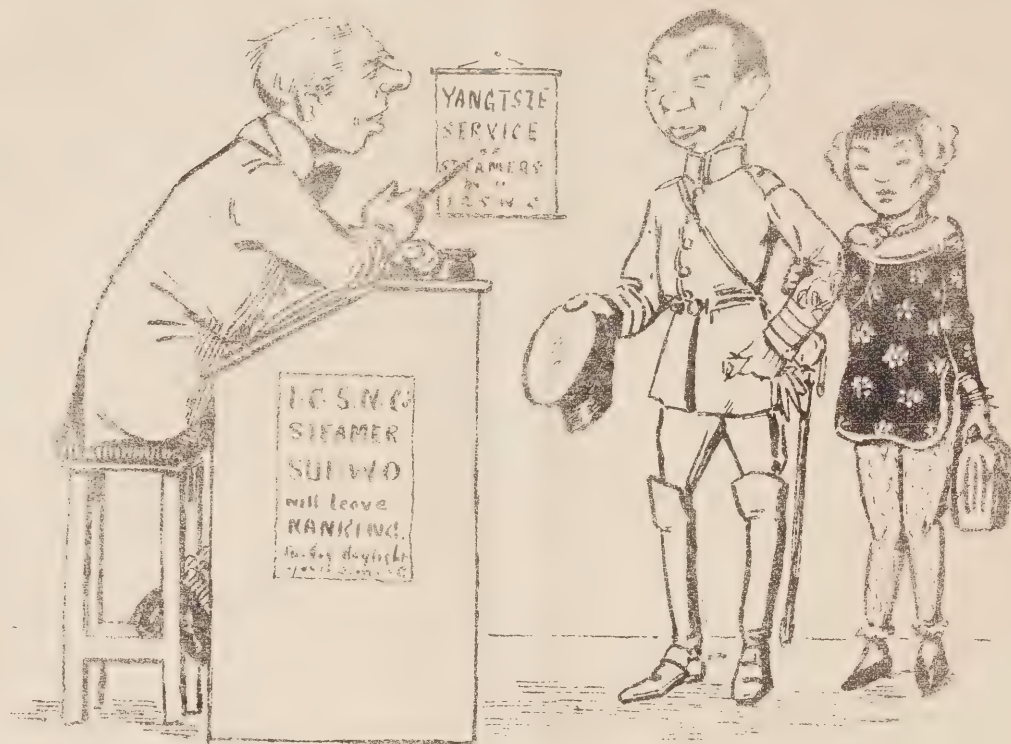 YANGTSZE
SERVICE
OF
STEAMERS
I.C.S.N.C
I.C.S.N.Co
STEAMER
SUIWO
will leave
NANKING.
daylight